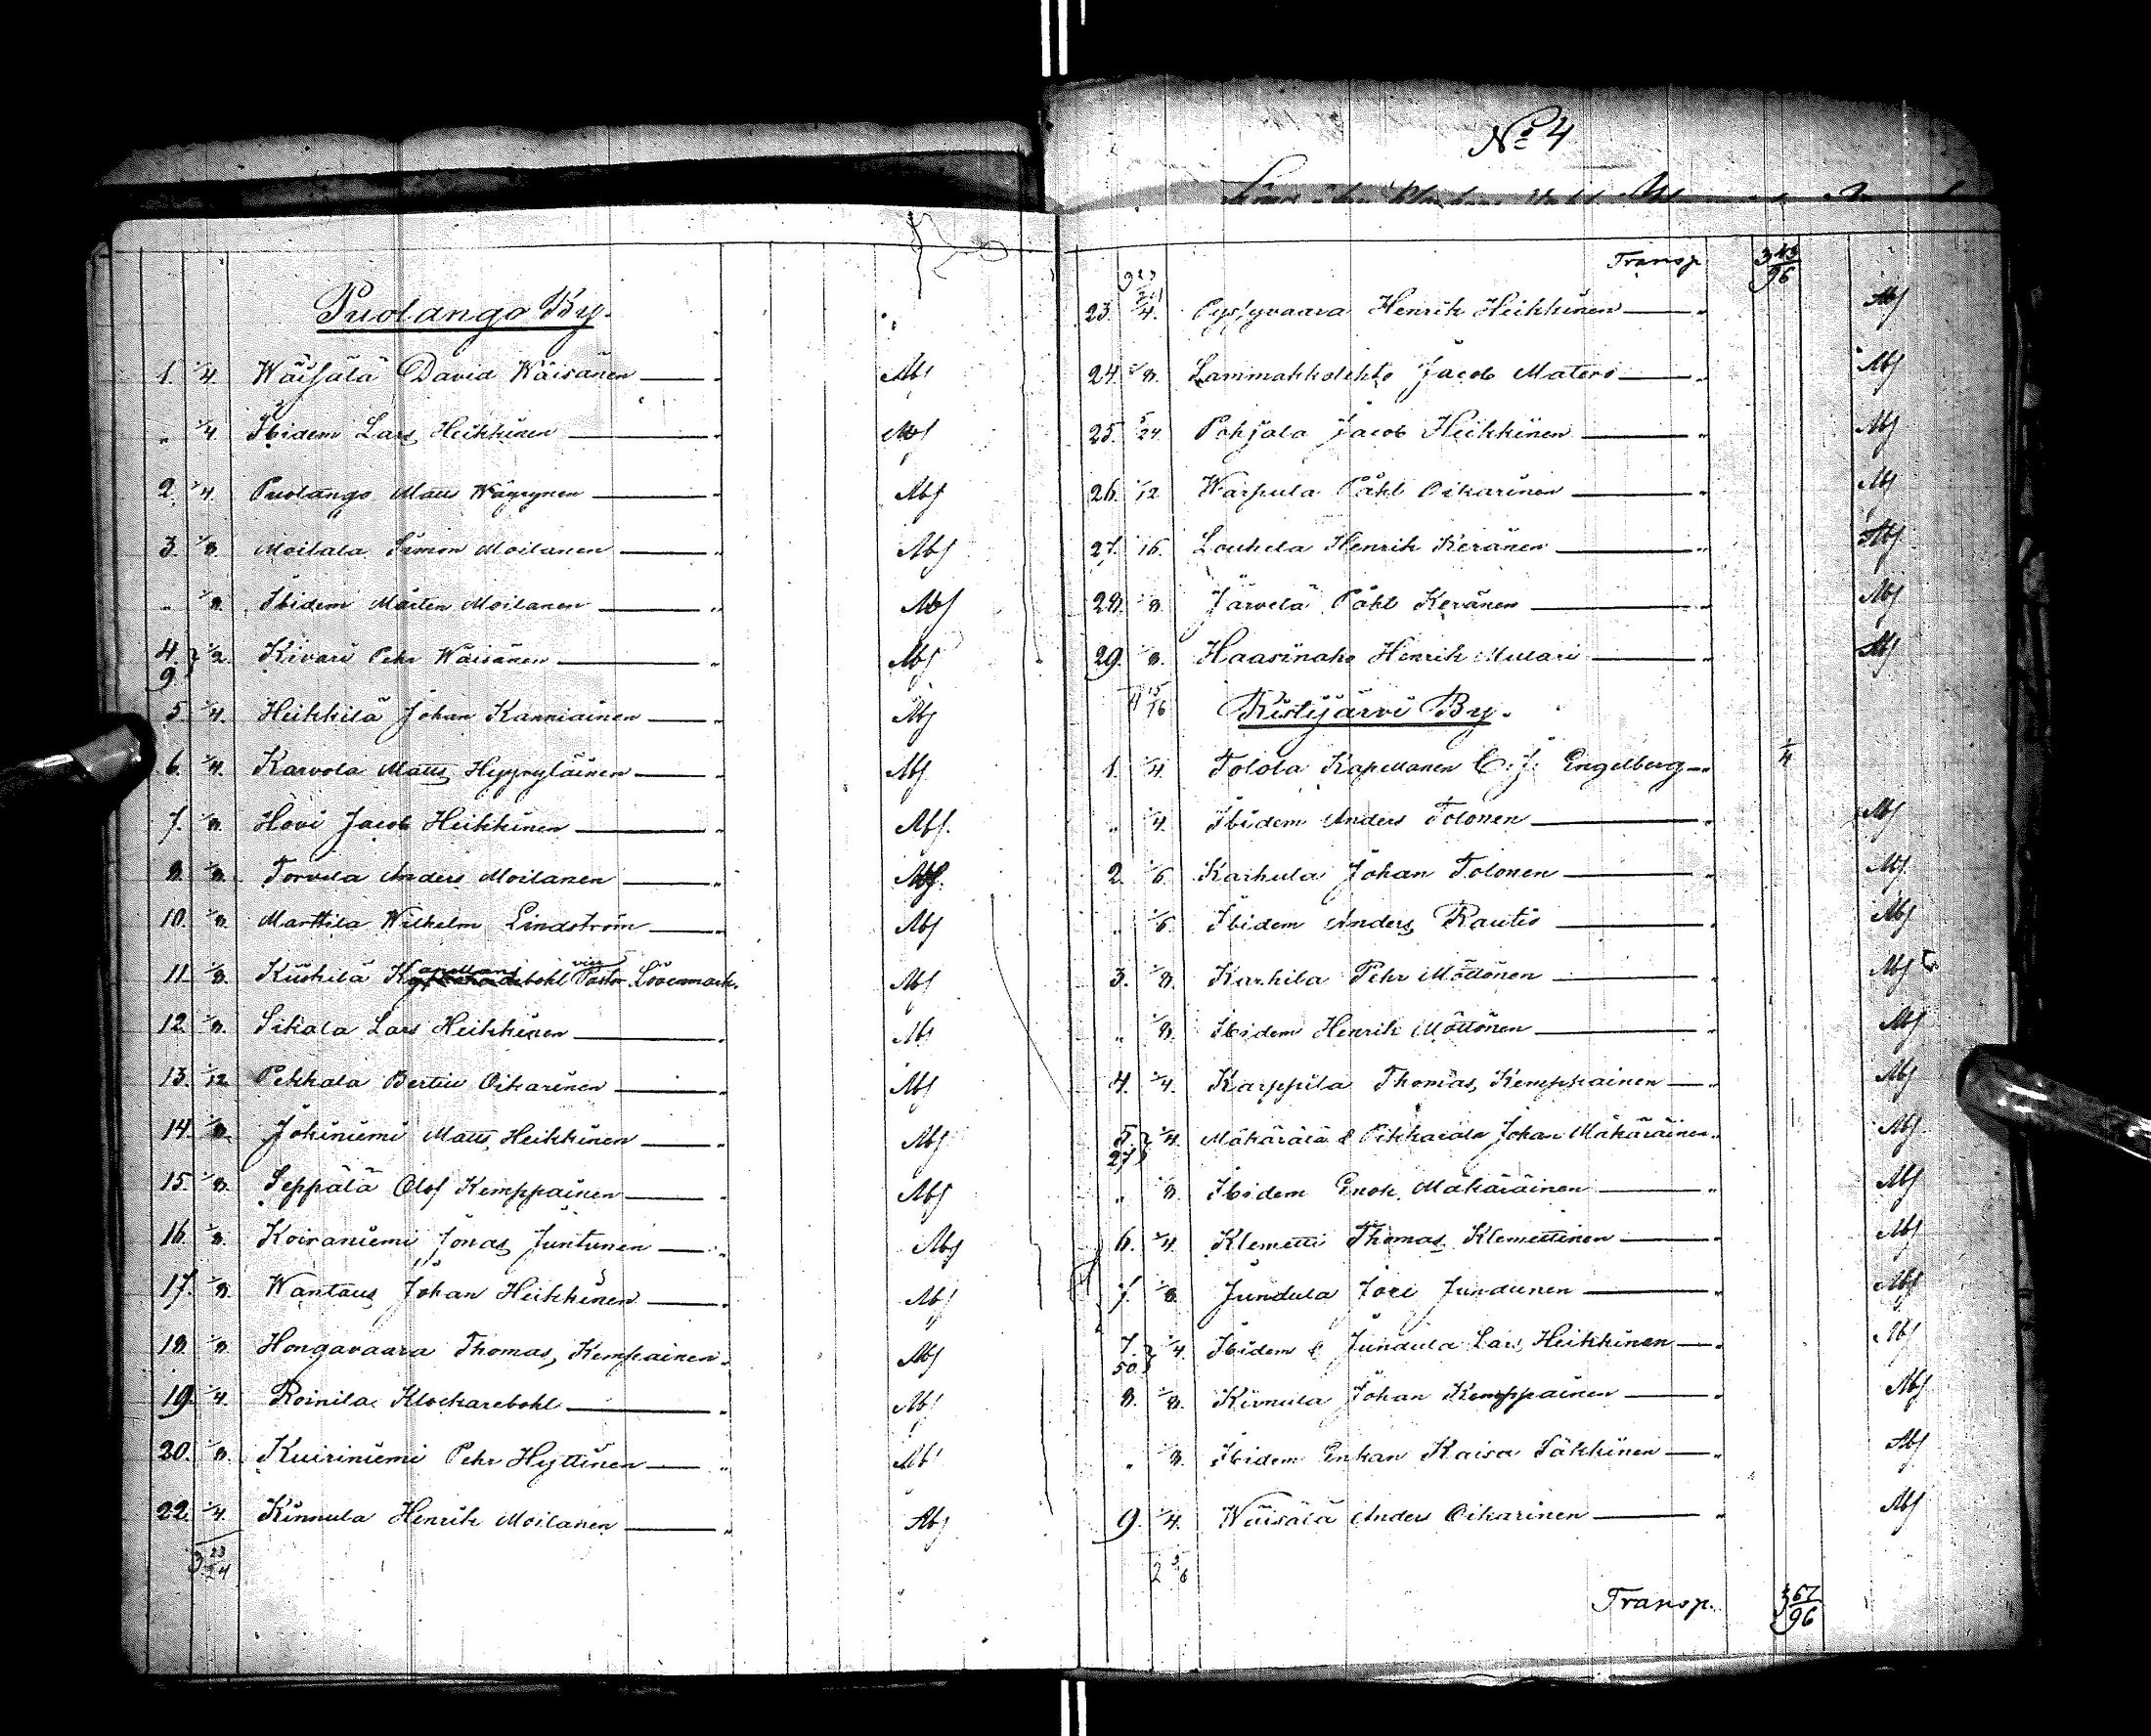 Puolango By.
1. 1/4. Wäisälä David Wäisänen — „ Abs
„ 1/4. Ibidem Lars Heikkinen — „ Abs
2. 1/4. Puolango Matts Wäyrynen — „ Abs
3. 1/8. Moilala Simon Moilanen — „ Abs
„ 1/8. Ibidem Mårten Moilanen — „ Abs
4. 9. } 1/2. Kivari Pehr Wäisänen — „ Abs
5. 1/4. Heikkilä Johan Kanniainen — „ Abs
6. 1/4. Karvola Matts Hyyryläinen — „ Abs
7. 1/8. Hovi Jacob Heikkinen — „ Abs.
8. 1/8. Torvela Anders Moilanen — „ Abs.
10. 1/8. Marttila Wilhelm Lindström — „ Abs
11. 1/8. Kuskelä Kapellans bohl vice Pastor Abs
12. 1/8. Sikala Lars Heikkinen — „ Abs
13. 1/12. Pekkala Bertill Oikarinen — „ Abs
14. 1/8. Jokiniemi Matts Heikkinen — „ Abs
15. 1/8. Seppälä Olof Kemppainen — „ Abs
16. 1/8. Koiraniemi Jonas Juntunen — „ Abs
17. 1/8. Wantaus Johan Heikkinen — „ Abs
18. 1/8. Hongavaara Thomas Kempainen „ Abs
19. 1/4. Roinila Klockarebohl — „ Abs
20. 1/8. Kuiriniemi Pehr Hyttinen — „ Abs
22. 1/4. Kinnula Henrik Moilanen — „ Abs
3 23/24
No 4
Transp. 3 43/96
23. 1/4. Pystyvaara Henrik Heikkinen — „ Abs
24. 1/8. Lammakkolehto Jacob Matero — „ Abs
25. 5/24. Pohjala Jacob Heikkinen — „ Abs
26. 1/12 Warpula Påhl Oikarinen — „ Abs
27. 1/16. Louhela Henrik Keränen — „ Abs
28. 1/8. Järvelä Påhl Keränen — „ Abs
29. 1/8. Haasinaho Henrik Mulari — „ Abs
4 15/16
Ristijärvi By.
1. 1/4. Tolola Kapellanen C. J. Engelberg — „ 1/4
„ 1/4. Ibidem Anders Tolonen — „ Abs
2. 1/6. Karhula Johan Tolonen — „ Abs.
„ 1/6. Ibidem Anders Rautio — „ Abs
3. 1/8. Karhila Pehr Möttönen — „ Abs
„ 1/8. Ibidem Henrik Möttönen — „ Abs
4. 1/4. Karppila Thomas Kemppainen — „ Abs
5. 27 } 1/4. Mäkärälä & Pikkarala Johan Mäkäräinen „ Abs
„ 1/8. Ibidem Enok Mäkäräinen — „ Abs
6. 1/4. Klemetti Thomas Klemettinen — „ Abs
7. 1/8. Jundula Jöre Jundunen — „ Abs
7. 50 } 1/4. Ibidem & Jundula Lars Heikkinen — „ Abs
8. 1/8. Kinnula Johan Kemppainen — „ Abs
„ 1/8. Ibidem Enkan Kaisa Säkkinen — „ Abs
9. 1/4. Wäisälä Anders Oikarinen — „ Abs
2 5/6
Transp. 3 67/96